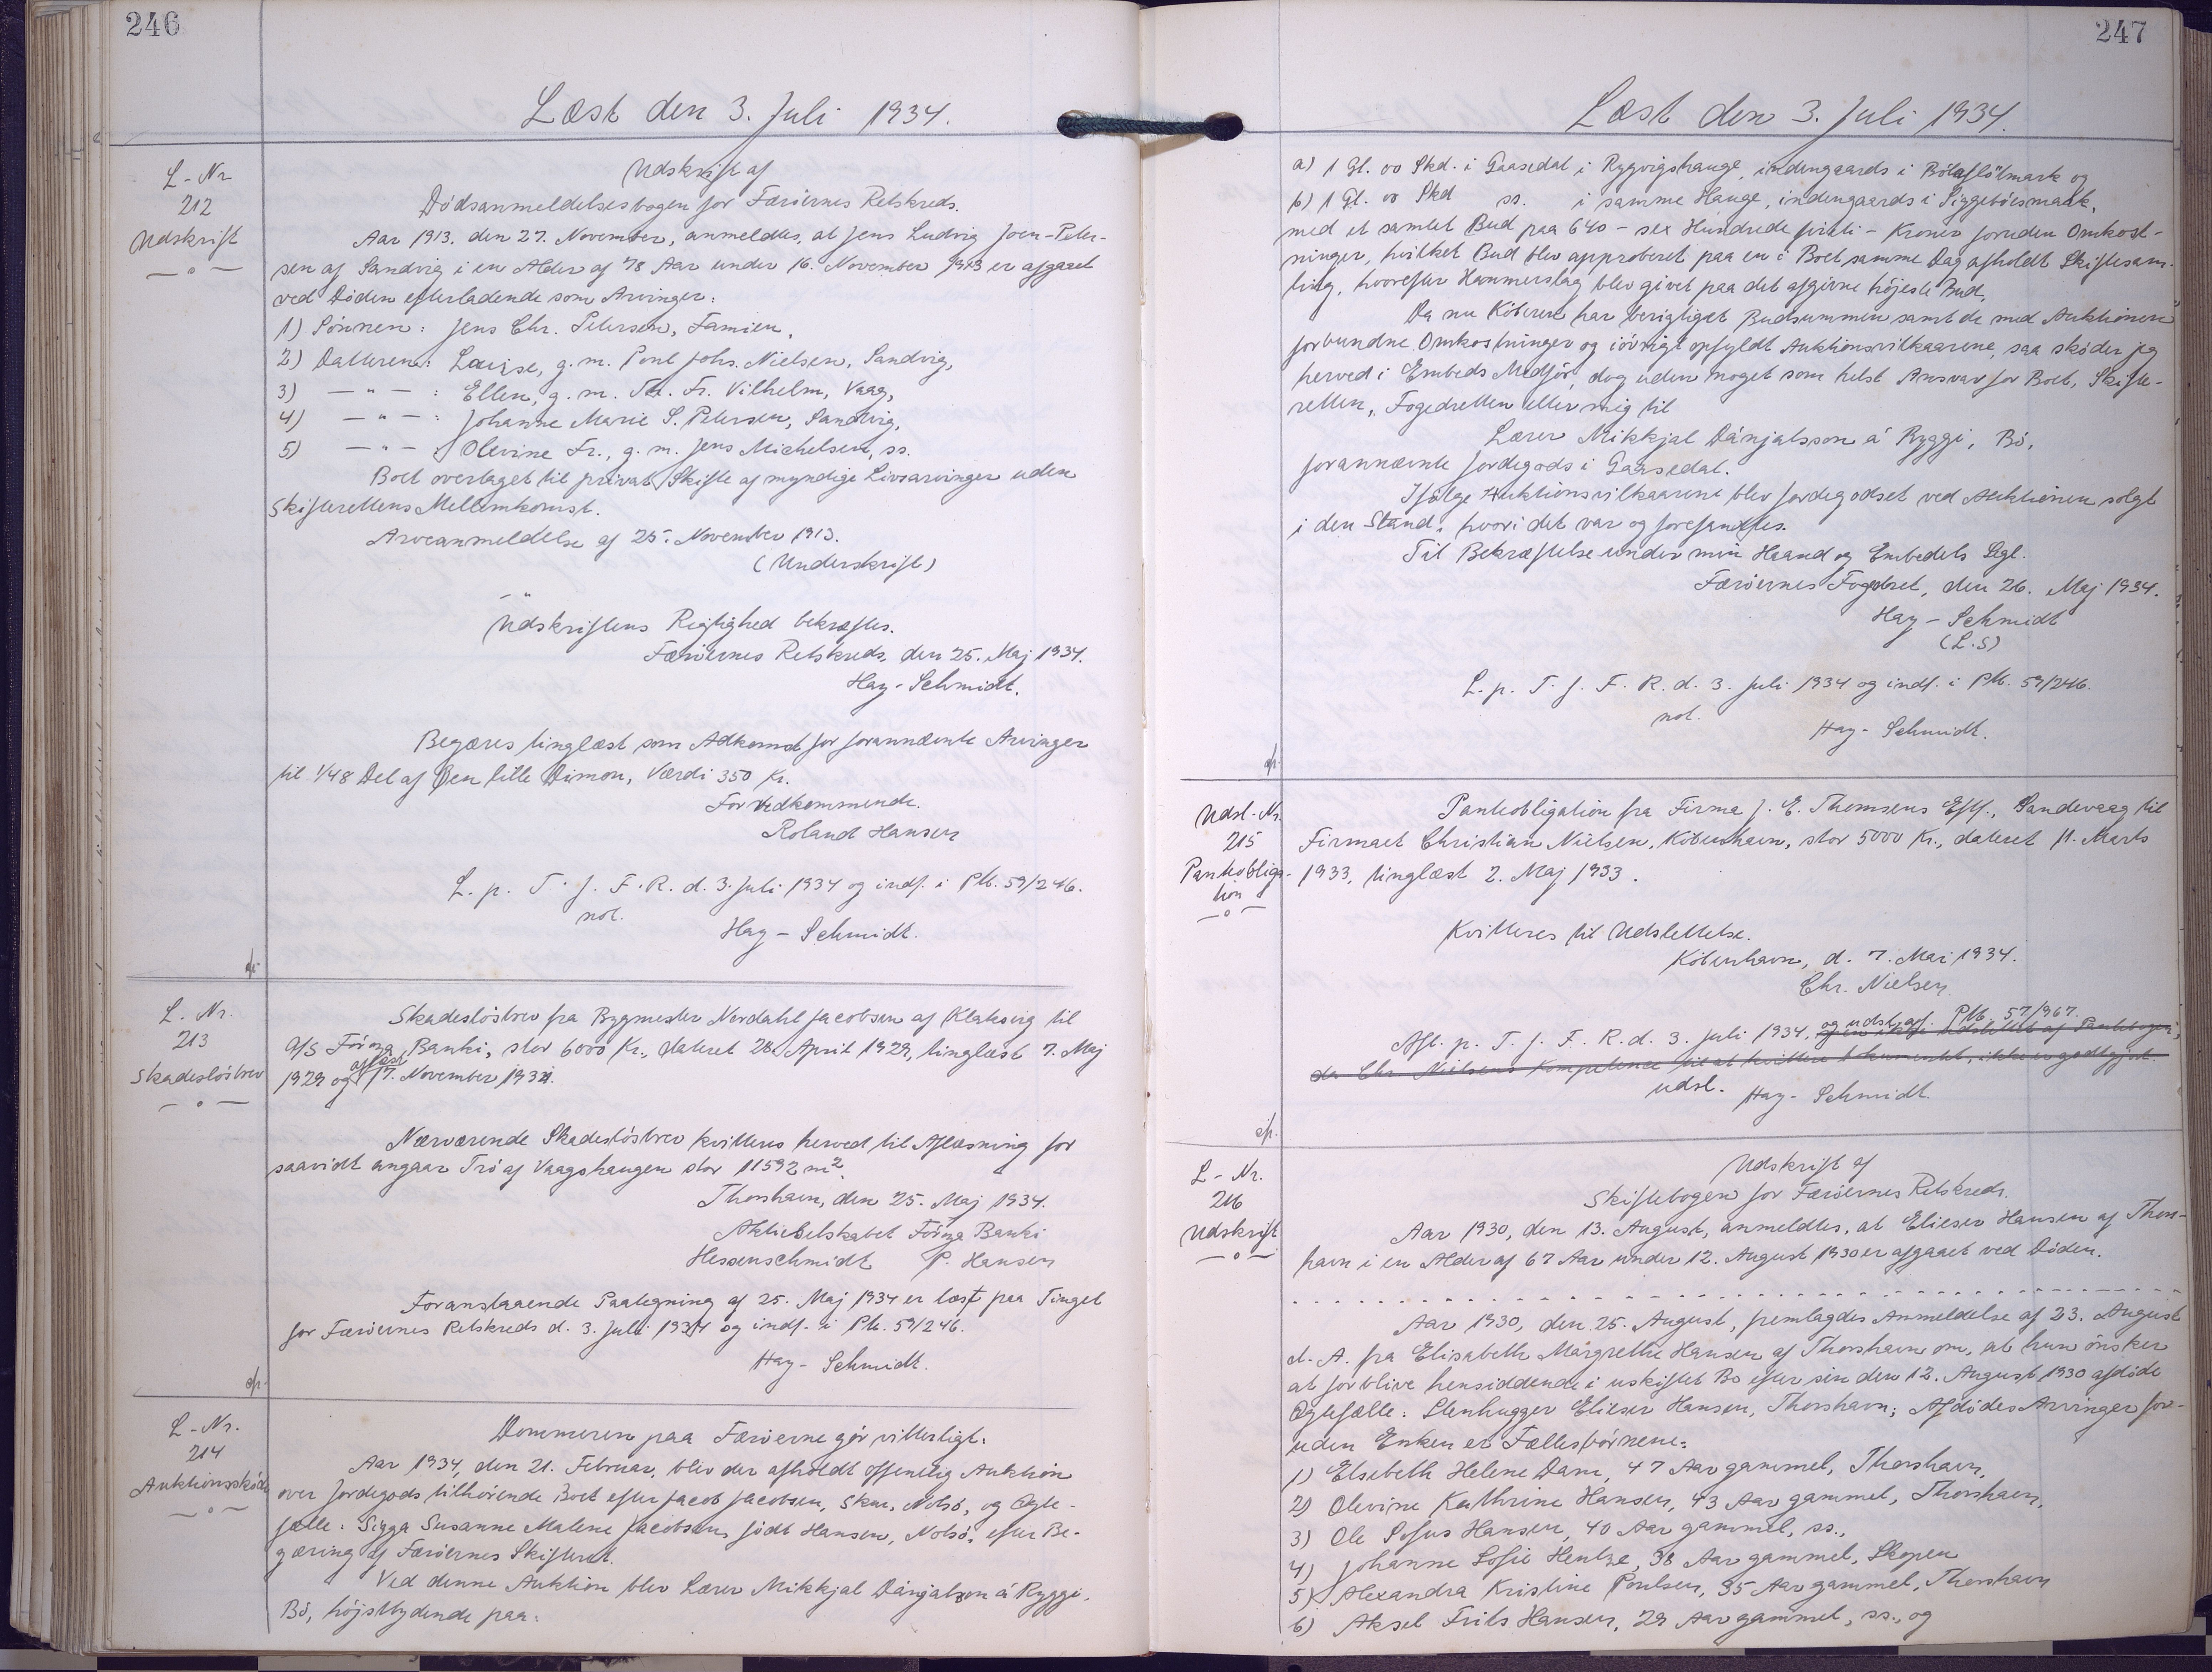 246
Læst den 3. Juli 1934.
L-Nr
212
Udskrift
Udskrift af
Dödsanmeldelsesbogen for Færöernes Retskreds.
Aar 1913, den 27. November, anmeldtes, at Jens Ludvig Joen-Peter-
sen af Sandvig i en Alder af 78 Aar under 16. November 1913 er afgaaet
ved Döden efterladende som Arvinger:
1) Sönnen: Jens Chr. Petersen, Famien,
2) Datteren: Louise, g.m. Poul Johs. Nielsen, Sandvig,
3) — " — : Ellen, g.m. Th. Fr. Vilhelm, Vaag,
4) — " — : Johanne Marie S. Petersen, Sandvig,
5) — " — : Olevine Fr., g.m. Jens Michelsen, ss.
Boet overtaget til privat Skifte af myndige Livsarvinger uden
Skifterettens Mellemkomst.
Arveanmeldelse af 25. November 1913.
(Underskrift)
Udskriftens Rigtighed bekræftes.
Færöernes Retskreds, den 25. Maj 1934.
Hay-Schmidt.
Begæres tinglæst som Adkomst for forannævnte Arvinger
til 1/48 Del af Öen lille Dimon, Værdi 350 Kr.
For Vedkommende.
Roland Hansen
L. p. T. f. F. R. d. 3. Juli 1934 og indf. i Ptb. 59/246.
not.
Hay-Schmidt.
L. Nr.
213
Skadeslösbrev
Skadeslösbrev fra Bygmester Nordahl Jacobsen af Klaksvig til
A/S Föroya Banki, stor 6000 Kr., dateret 28. April 1929, tinglæst 7. Maj
1929 og aflæst 17. November 1931.
Nærværende Skadeslösbrev kvitteres herved til Aflæsning for
saavidt angaar Trö af Vaagshaugen stor 11592 m².
Thorshavn, den 25. Maj 1934.
Aktieselskabet Föroya Banki
Hessenschmidt P. Hansen
Foranstaaende Paategning af 25. Maj 1934 er læst paa Tinget
for Færöernes Retskreds d. 3. Juli 1934 og indf. i Ptb. 59/246.
Hay-Schmidt.
L-Nr.
214
Auktionssköde
Dommeren paa Færöerne gör vitterligt:
Aar 1934, den 21. Februar, blev der afholdt offentlig Auktion
over Jordegods tilhörende Boet efter Jacob Jacobsen, Skar, Nolsö, og Ægte-
fælle: Sigga Susanne Malene Jacobsen, födt Hansen, Nolsö, efter Be-
gæring af Færöernes Skifteret.
Ved denne Auktion blev Lærer Mikkjal Dánjalsson á Ryggi,
Bö, höjstbydende paa:
247
Læst den 3. Juli 1934.
a) 1 Gl. oo Skd. i Gaasedal i Rygvigshauge, indengaards i Bölaflötmark og
b) 1 Gl. oo Skd ss. i samme Hauge, indengaards i Siggeböesmark,
med et samlet Bud paa 640 - sex Hundrede firti - Kroner foruden Omkost-
ninger, hvilket Bud blev approberet paa en i Boet samme Dag afholdt Skiftesam-
ling, hvorefter Hammerslag blev givet paa det afgivne höjeste Bud.
Da nu Köberen har berigtiget Budsummen samt de med Auktionen
forbundne Omkostninger og iövrigt opfyldt Auktionsvilkaarene, saa sköder jeg
herved i Embeds Medför, dog uden noget som helst Ansvar for Boet, Skifte-
retten, Fogedretten eller mig til
Lærer Mikkjal Dánjalsson á Ryggi, Bö,
forannævnte Jordegods i Gaasedal.
Ifölge Auktionsvilkaarene blev Jordegodset ved Auktionen solgt
i den Stand, hvori det var og forefandtes.
Til Bekræftelse under min Haand og Embedets Segl.
Færöernes Fogedret, den 26. Maj 1934.
Hay-Schmidt
(L.S)
L. p. T. f. F. R. d. 3. Juli 1934 og indf. i Ptb. 59/246.
not.
Hay-Schmidt.
Udsl-Nr.
215
Panteobliga-
tion
Panteobligation fra Firma J. E. Thomsens Eftf., Sandevaag til
Firmaet Christian Nielsen, Köbenhavn, stor 5000 Kr., dateret 11. Marts
1933, tinglæst 2. Maj 1933.
Kvitteres til Udslettelse.
København, d. 7. Mai 1934.
Chr. Nielsen
Afl. p. T. f. F. R. d. 3. Juli 1934. og udsl. af Ptb. 57/967.
da Chr. Nielsens Kompetence til at kvittere Dokumentet, ikke er godtgjort.
udsl.
Hay-Schmidt.
L-Nr.
216
Udskrift
Udskrift af
Skiftebogen for Færöernes Retskreds.
Aar 1930, den 13. August, anmeldtes, at Elieser Hansen af Thors-
havn i en Alder af 67 Aar under 12. August 1930 er afgaaet ved Döden.
Aar 1930, den 25. August, fremlagdes Anmeldelse af 23. August
d. A. fra Elisabeth Margrethe Hansen af Thorshavn om, at hun önsker
at forblive hensiddende i uskiftet Bo efter sin den 12. August 1930 afdöde
Ægtefælle: Stenhugger Elieser Hansen, Thorshavn; Afdödes Arvinger for-
uden Enken er Fællesbörnene:
1) Elsebeth Helene Dam, 47 Aar gammel, Thorshavn,
2) Olevine Kathrine Hansen, 43 Aar gammel, Thorshavn,
3) Ole Sofus Hansen, 40 Aar gammel, ss.,
4) Johanne Sofie Hentze, 38 Aar gammel, Skopen
5) Alexandra Kristine Poulsen, 35 Aar gammel, Thorshavn
6) Aksel Frits Hansen, 29 Aar gammel, ss., og